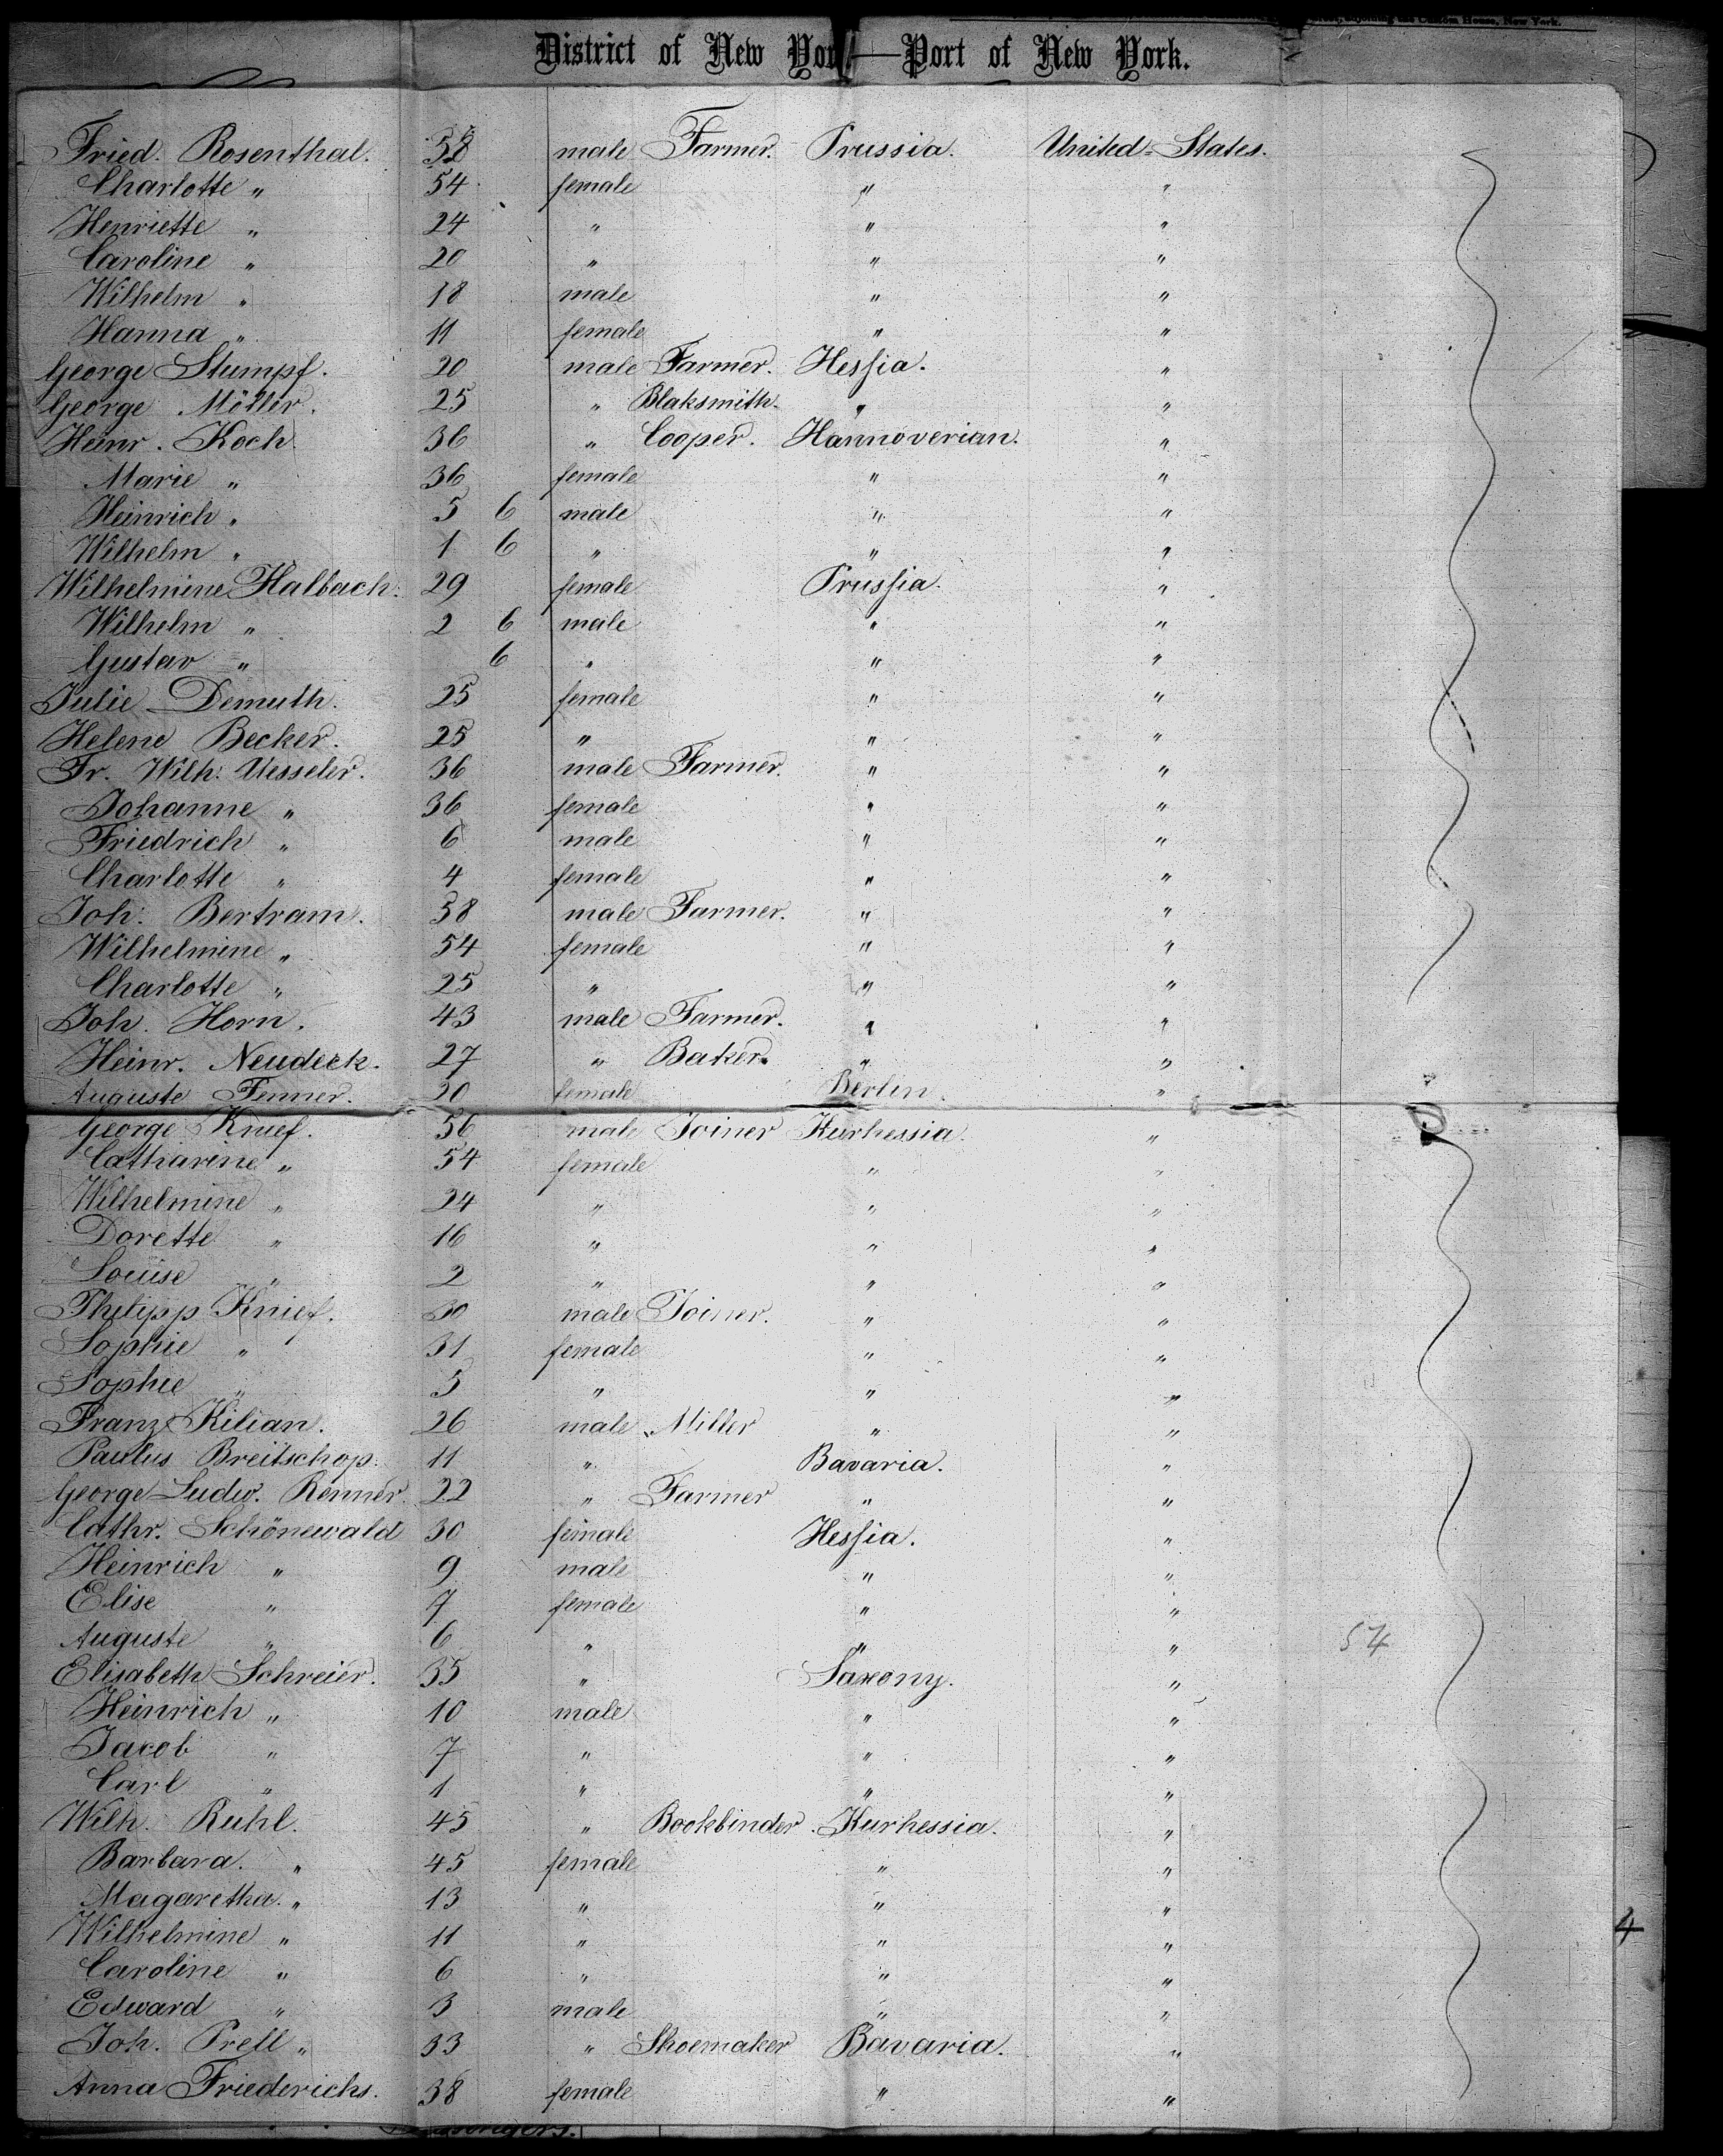 District of New York — Port of New York.
Fried. Rosenthal. 58 male Farmer. Prussia. United States.
Charlotte " 54 female " "
Henriette " 24 " " "
Caroline " 20 " " "
Wilhelm " 18 male " "
Hanna " 11 female " "
George Stumpf. 20 male Farmer. Hessia. "
George Möller. 25 " Blaksmith. " "
Heinr. Koch 36 " Cooper. Hannoverian. "
Marie " 36 female " "
Heinrich " 5 6 male " "
Wilhelm " 1 6 " " "
Wilhelmine Halbach. 29 female Prussia. "
Wilhelm " 2 6 male " "
Gustav " 6 " " "
Julie Demuth. 25 female " "
Helene Becker. 25 " " "
Fr. Wilh. Uesseler. 36 male Farmer. " "
Johanne " 36 female " "
Friedrich " 6 male " "
Charlotte " 4 female " "
Joh. Bertram. 58 male Farmer. " "
Wilhelmine " 54 female " "
Charlotte " 25 " " "
Joh. Horn. 43 male Farmer. " "
Heinr. Neudeck. 27 " Baker. " "
Auguste Fenner. 20 female Berlin. "
George Knief. 56 male Joiner Kurhessia. "
Catharine " 54 female " "
Wilhelmine " 24 " " "
Dorette " 16 " " "
Louise " 2 " " "
Philipp Knief. 30 male Joiner. " "
Sophie " 31 female " "
Sophie " 5 " " "
Franz Kilian. 26 male Miller " "
Paulus Breitschop. 11 " Bavaria. "
George Ludw. Renner 22 " Farmer " "
Cathr. Schönewald 30 female Hessia. "
Heinrich " 9 male " "
Elise " 7 female " "
Auguste " 6 " " " 54
Elisabeth Schreier. 35 " Saxony. "
Heinrich " 10 male " "
Jacob " 7 " " "
Carl " 1 " " "
Wilh. Ruhl. 45 " Bookbinder. Kurhessia. "
Barbara. " 45 female " "
Magaretha. " 13 " " "
Wilhelmine " 11 " " "
Caroline " 6 " " "
Edward " 3 male " "
Joh. Prell " 33 " Shoemaker Bavaria. "
Anna Friederichs. 38 female " "
4